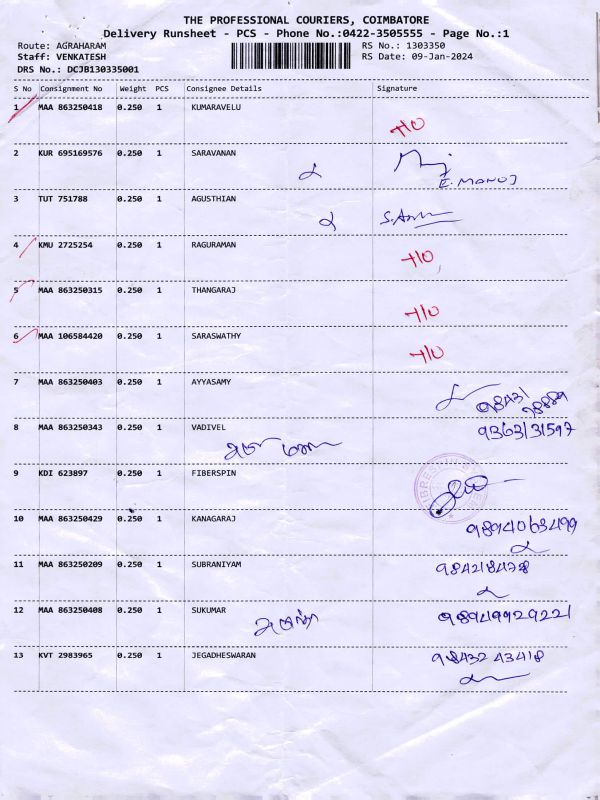 THE PROFESSIONAL COURIERS, COIMBATORE
Delivery Runsheet - PCS - Phone No.:0422-3505555 - Page No.:1
Route: AGRAHARAM RS No.: 1303350
Staff: VENKATESH RS Date: 09-Jan-2024
DRS No.: DCJB130335001
S No Consignment No Weight PCS Consignee Details Signature
1 MAA 863250418 0.250 1 KUMARAVELU
H/O
2 KUR 695169576 0.250 1 SARAVANAN
E. MANOJ
3 TUT 751788 0.250 1 AGUSTHIAN
4 KMU 2725254 0.250 1 RAGURAMAN
H/O
5 MAA 863250315 0.250 1 THANGARAJ
H/O
6 MAA 106584420 0.250 1 SARASWATHY
H/O
7 MAA 863250403 0.250 1 AYYASAMY
98431
98889
8 MAA 863250343 0.250 1 VADIVEL 9363131597
9 KDI 623897 0.250 1 FIBERSPIN
10 MAA 863250429 0.250 1 KANAGARAJ
9894063499
11 MAA 863250209 0.250 1 SUBRANIYAM 984218478
12 MAA 863250408 0.250 1 SUKUMAR 98949929221
13 KVT 2983965 0.250 1 JEGADHESWARAN 98432 43418